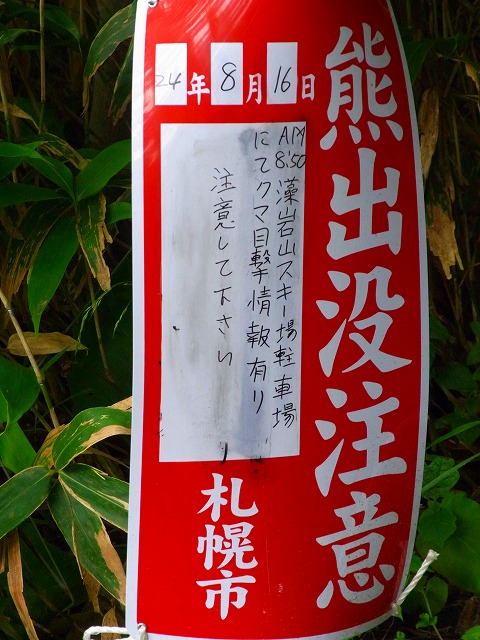 熊出没注意
24年8月16日
AM8:50 藻岩山スキー場駐車場
にてクマ目撃情報有り
注意して下さい
札幌市